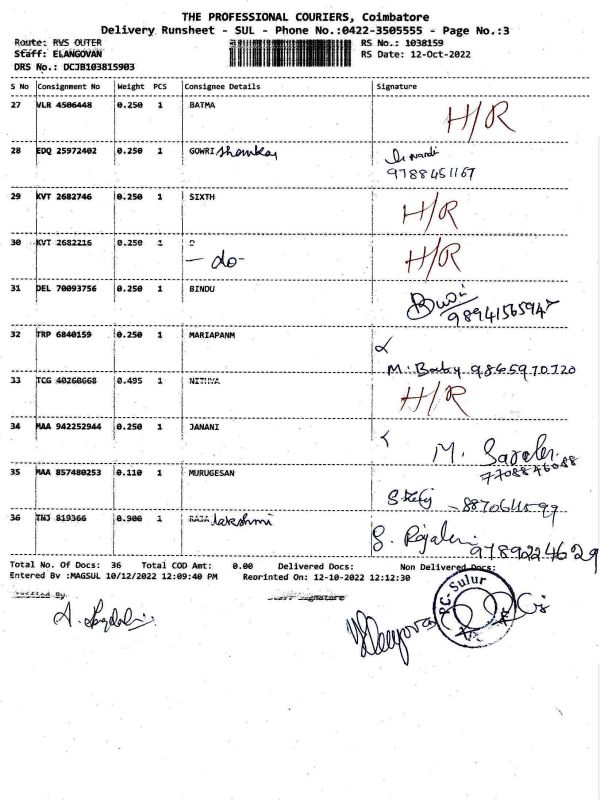 THE PROFESSIONAL COURIERS, Coimbatore
Delivery Runsheet - SUL - Phone No.:0422-3505555 - Page No.:3
Route: RVS OUTER RS No.: 1038159
Staff: ELANGOVAN RS Date: 12-Oct-2022
DRS No.: DCJB103815903
S No Consignment No Weight PCS Consignee Details Signature
27 VLR 4506448 0.250 1 BATMA H/R
28 EDQ 25972402 0.250 1 GOWRI Shankar
9788451167
29 KVT 2682746 0.250 1 SIXTH H/R
30 KVT 2682216 0.250 1 H/R
- do -
31 DEL 70093756 0.250 1 BINDU
9894156594
32 TRP 6840159 0.250 1 MARIAPANM
M. 9865970720
33 TCG 40260668 0.495 1 NITHYA H/R
34 MAA 942252944 0.250 1 JANANI
M.
7708846088
35 MAA 857480253 0.110 1 MURUGESAN
36 TNJ 819366 0.900 1 RAJA lakshmi
9789224629
Total No. Of Docs: 36 Total COD Amt: 0.00 Delivered Docs: Non Delivered Docs:
Entered By :MAGSUL 10/12/2022 12:09:40 PM Reprinted On: 12-10-2022 12:12:30
Verified By Staff Signature
PC-Sulur